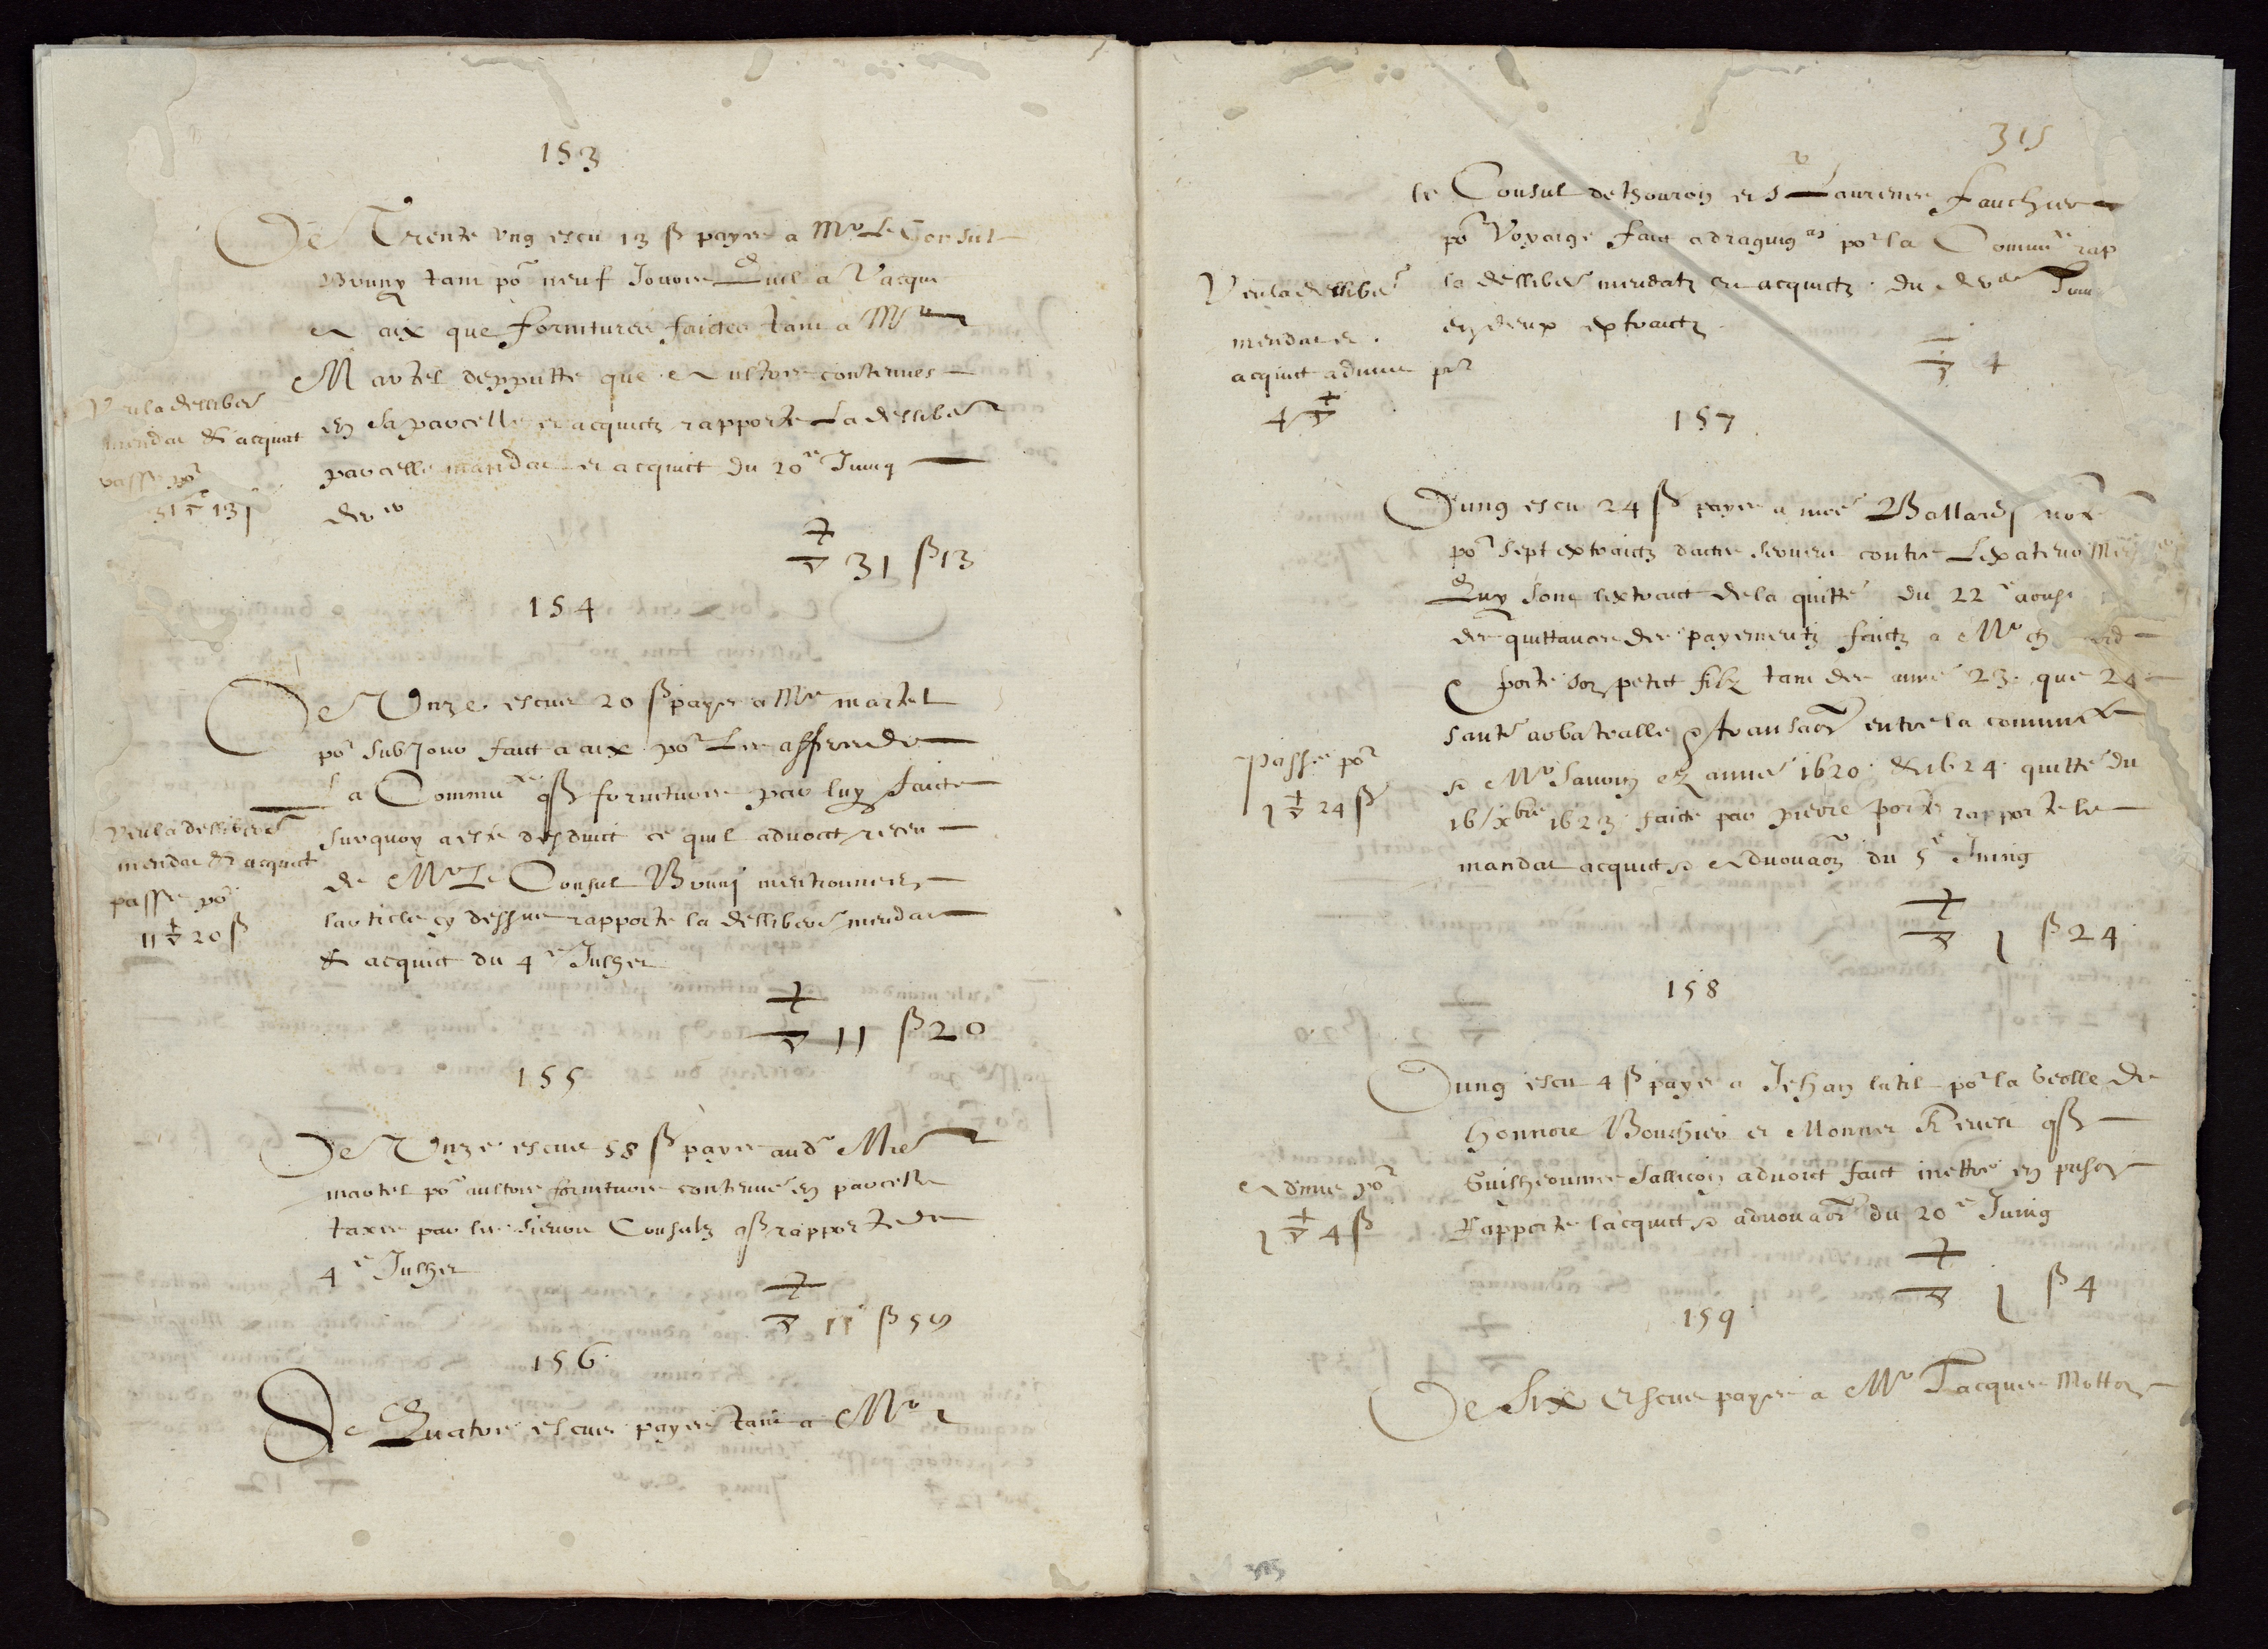 153
De Trente ung escu 13 ß payes a Mr Le Consul
Bruny tant por neuf Jours Quil a Vacque
a aix que fornitures faictes tant a Mre
Martel depputte que aultres contenues
en sa parcelle et acquictz rapporte La delliberon
parcelle mandat et acquict du 20e Juing
dernier
Veu la delliberon
mendat & acquict
passe por
31 13 ß
31 ß 13
154
De Unze escus 20 ß payes a Mre martel
por subjour faict a aix por Les affaires de
La Commute fornitures par luy faictes
surquoy a este desduict ce quil advoict receu
de Mr Le Consul Brunj mentionne en
larticle cy dessus rapporte la delliberon mendat
& acquict du 4e Julhet
Veu la delliberon
mendat & acquict
passe por
11 20 ß
11 ß 20
155
De Unze escus 58 ß payes aud Mre
martel por aultres fornitures contenues en parcelle
taxee par les sieurs Consulz rapporte de
4e Julhet
11 ß 58
156
De Quatre escus payes tant a Mr
315
le Consul de thouron et sr Laurens fauchier
por Voyaige faict a draguignan por la Commute rap
la delliberon mendatz et acquictz du dernier Juin
en deux extraictz
Veu la delliberon
mendat et
acquict admis por
4
4
157
Dung escu 24 ß payes a mre Ballardj nore
por sept extraictz dactes servieu contre
Quy sont lextraict de la quitte du 22e aoust
des quittances des payementz faictz a Mr
porte son petit filz tant des annees 23 que 24
sante arbatralle transaction entre la commute
& Mr Sauvan ez annees 1620 & 1624 quitte du
16 xbre 1623 faicte par pierre porte rapporte le
mandat acquict & advouaon du 5e Juing
Passe por
1 24 ß
1 ß 24
158
Dung escu 4 ß payes a Jehan latil por la geolle de
honnore Bouchier et Monnet
Guilheoume Sallicon advoict faict mettre en prison
Rapporte lacquict & advouaon du 20e Juing
Admis por
1 4 ß
1 ß 4
159
De Six Escus payes a Mr Jacques Motton
315